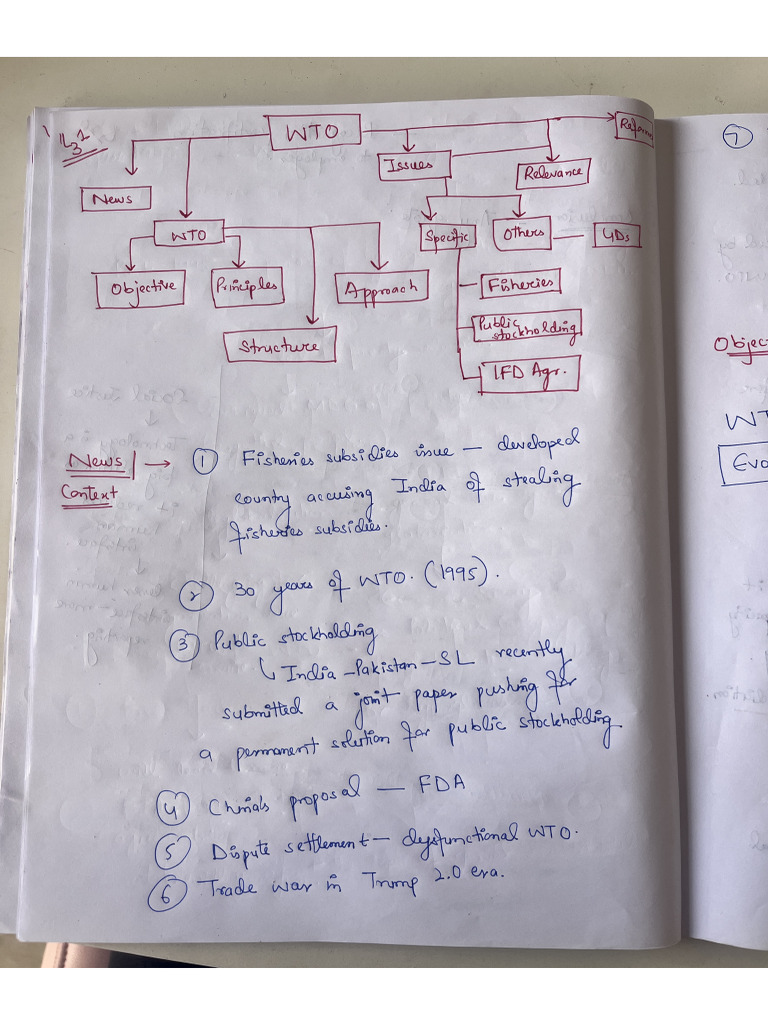 L31
WTO
Reform
Issues
Relevance
News
WTO
Specific
Others
4Ds
Objective
Principles
Approach
Structure
Fisheries
Public stockholding
IFD Agr.
News
Context
① Fisheries subsidies issue – developed
country accusing India of stealing
fisheries subsidies.
② 30 years of WTO. (1995).
③ Public stockholding
India – Pakistan – SL recently
submitted a joint paper pushing for
a permanent solution for public stockholding
④ China's proposal – FDA
⑤ Dispute settlement – dysfunctional WTO.
⑥ Trade war in Trump 2.0 era.
⑦
Objec
WT
Evo